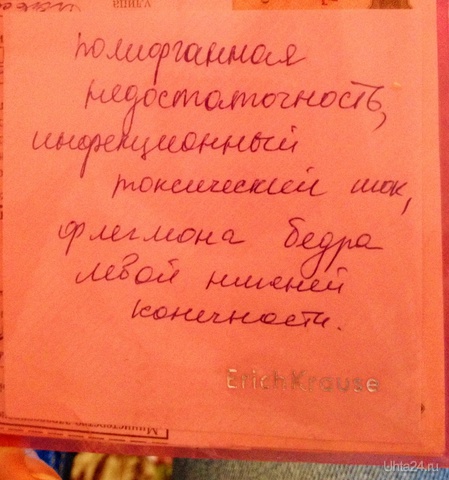 улица
полиорганная
недостаточность,
инфекционный
токсический шок,
флегмона бедра
левой нижней
конечности.
ErichKrause
Министерство
Uhta24.ru